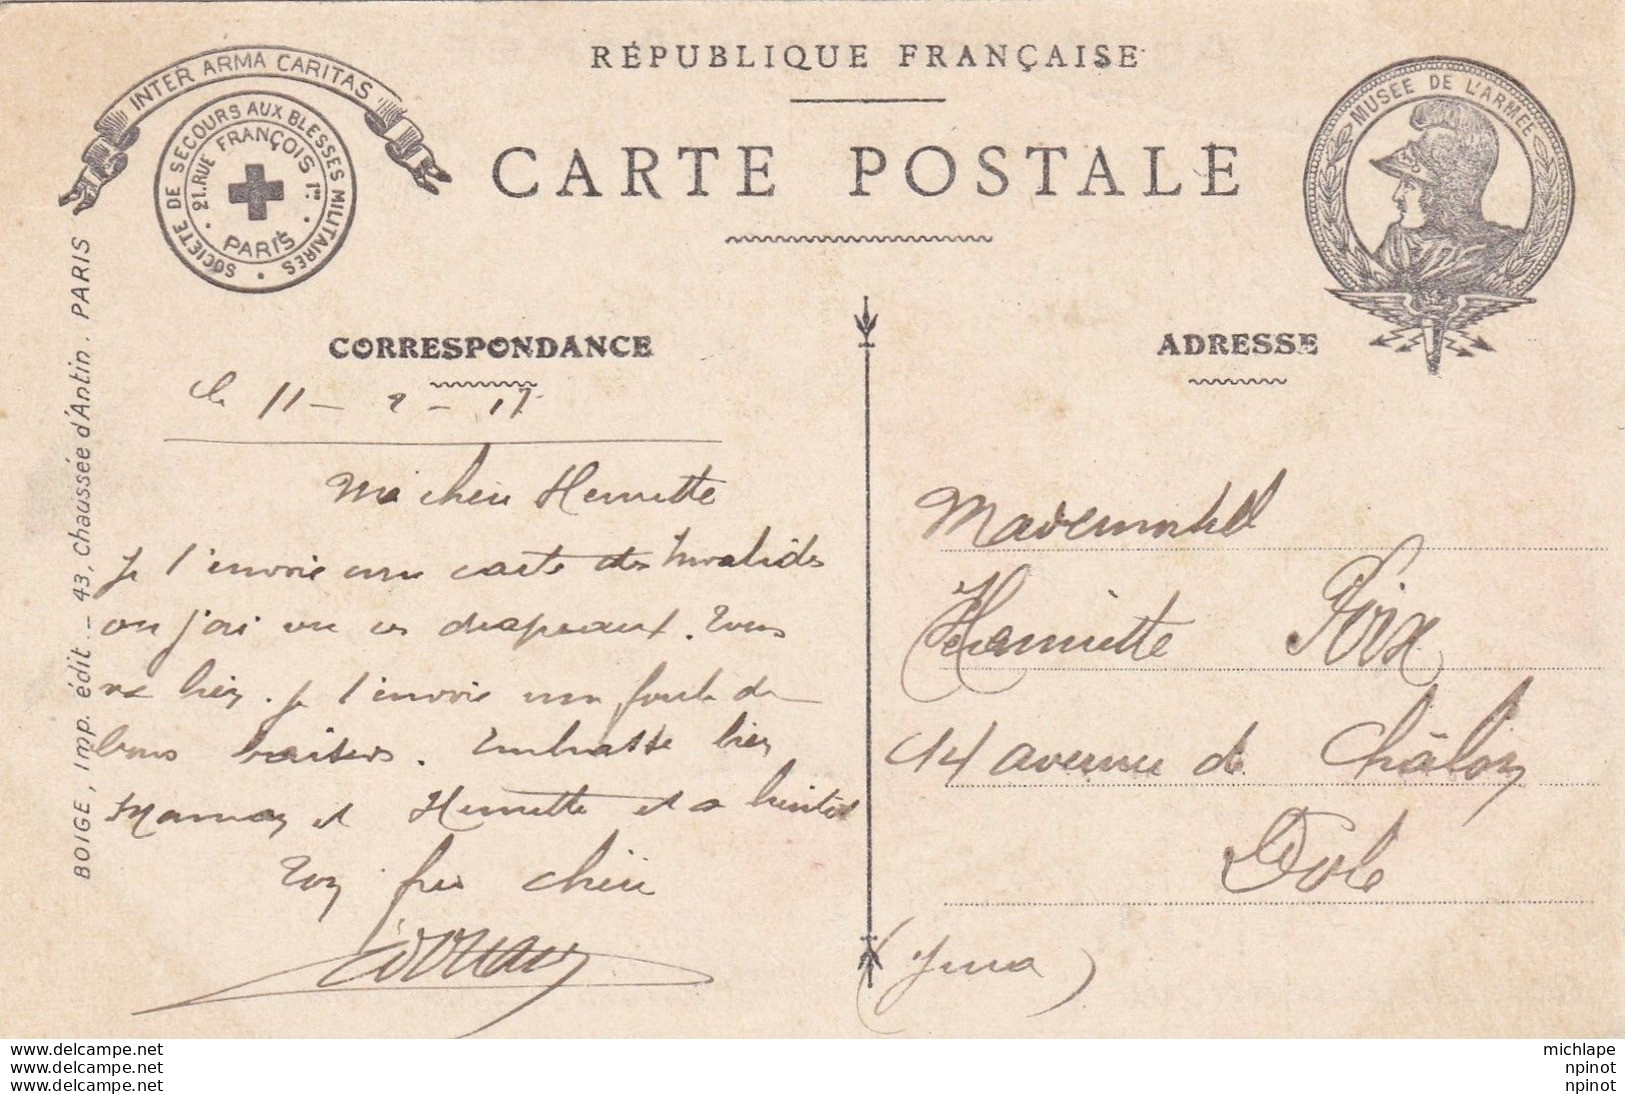 RÉPUBLIQUE FRANÇAISE
CARTE POSTALE
INTER ARMA CARITAS
SOCIÉTÉ DE SECOURS AUX BLESSÉS MILITAIRES
21. RUE FRANÇOIS Ier.
PARIS
MUSÉE DE L'ARMÉE
BOIGE, Imp. édit _ 43, Chaussée d'Antin . PARIS
CORRESPONDANCE
le 11 - 2 - 17
Ma chère Henriette
Je t'envoie une carte des Invalides
ou j'ai vu ces drapeaux. Tous
va bien. Je t'envoie une foule de
bons baisers. Embrasse bien
Maman et Henriette et a bientôt
Ton frère chéri
ADRESSE
Mademoiselle
Henriette Foix
14 avenue de Châlon
Dole
(Jura)
www.delcampe.net
www.delcampe.net
www.delcampe.net
michlape
npinot
npinot